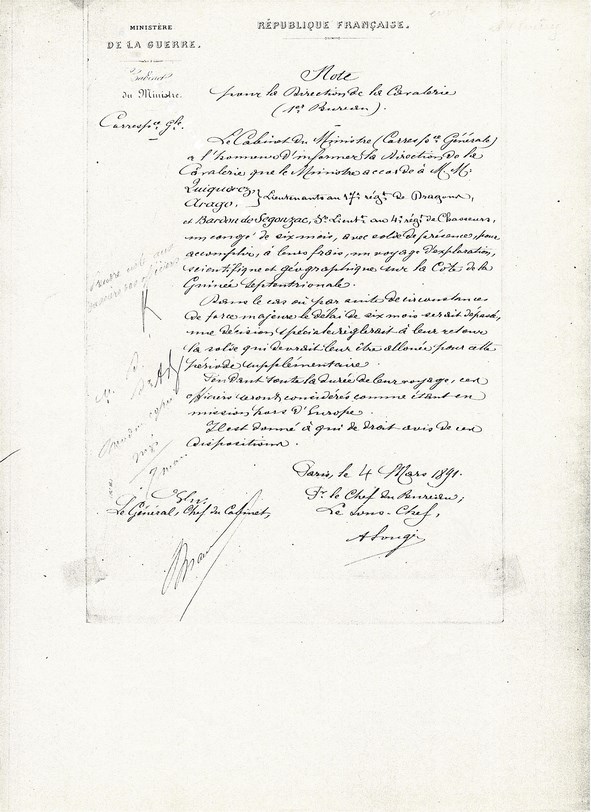 MINISTÈRE
DE LA GUERRE.
Cabinet
du Ministre.
Corresp.ce G.le
RÉPUBLIQUE FRANÇAISE.
Note
pour la Direction de la Cavalerie
(1er Bureau).
Le Cabinet du Ministre (Corresp.ce Générale)
a l'honneur d'informer la Direction de la
Cavalerie que le Ministre accorde à M.M.
Quiquerez,
Arago, } Lieutenants au 17e régt de Dragons,
et Bardon de Segonzac, S. Lieutt au 4e régt de Chasseurs,
un congé de six mois, avec solde de présence, pour
accomplir, à leurs frais, un voyage d'exploration,
scientifique et géographique sur la Côte de la
Guinée Septentrionale.
Dans le cas où par suite de circonstances
de force majeure le délai de six mois serait dépassé,
une décision spéciale règlerait à leur retour
la solde qui devrait leur être allouée pour cette
période supplémentaire.
Pendant toute la durée de leur voyage, ces
officiers seront considérés comme étant en
mission hors d'Europe.
Il est donné à qui de droit avis de ces
dispositions.
Paris, le 4 Mars 1891.
Pr le Chef du Bureau;
Le Sous-Chef,
Le Général, Chef du Cabinet,